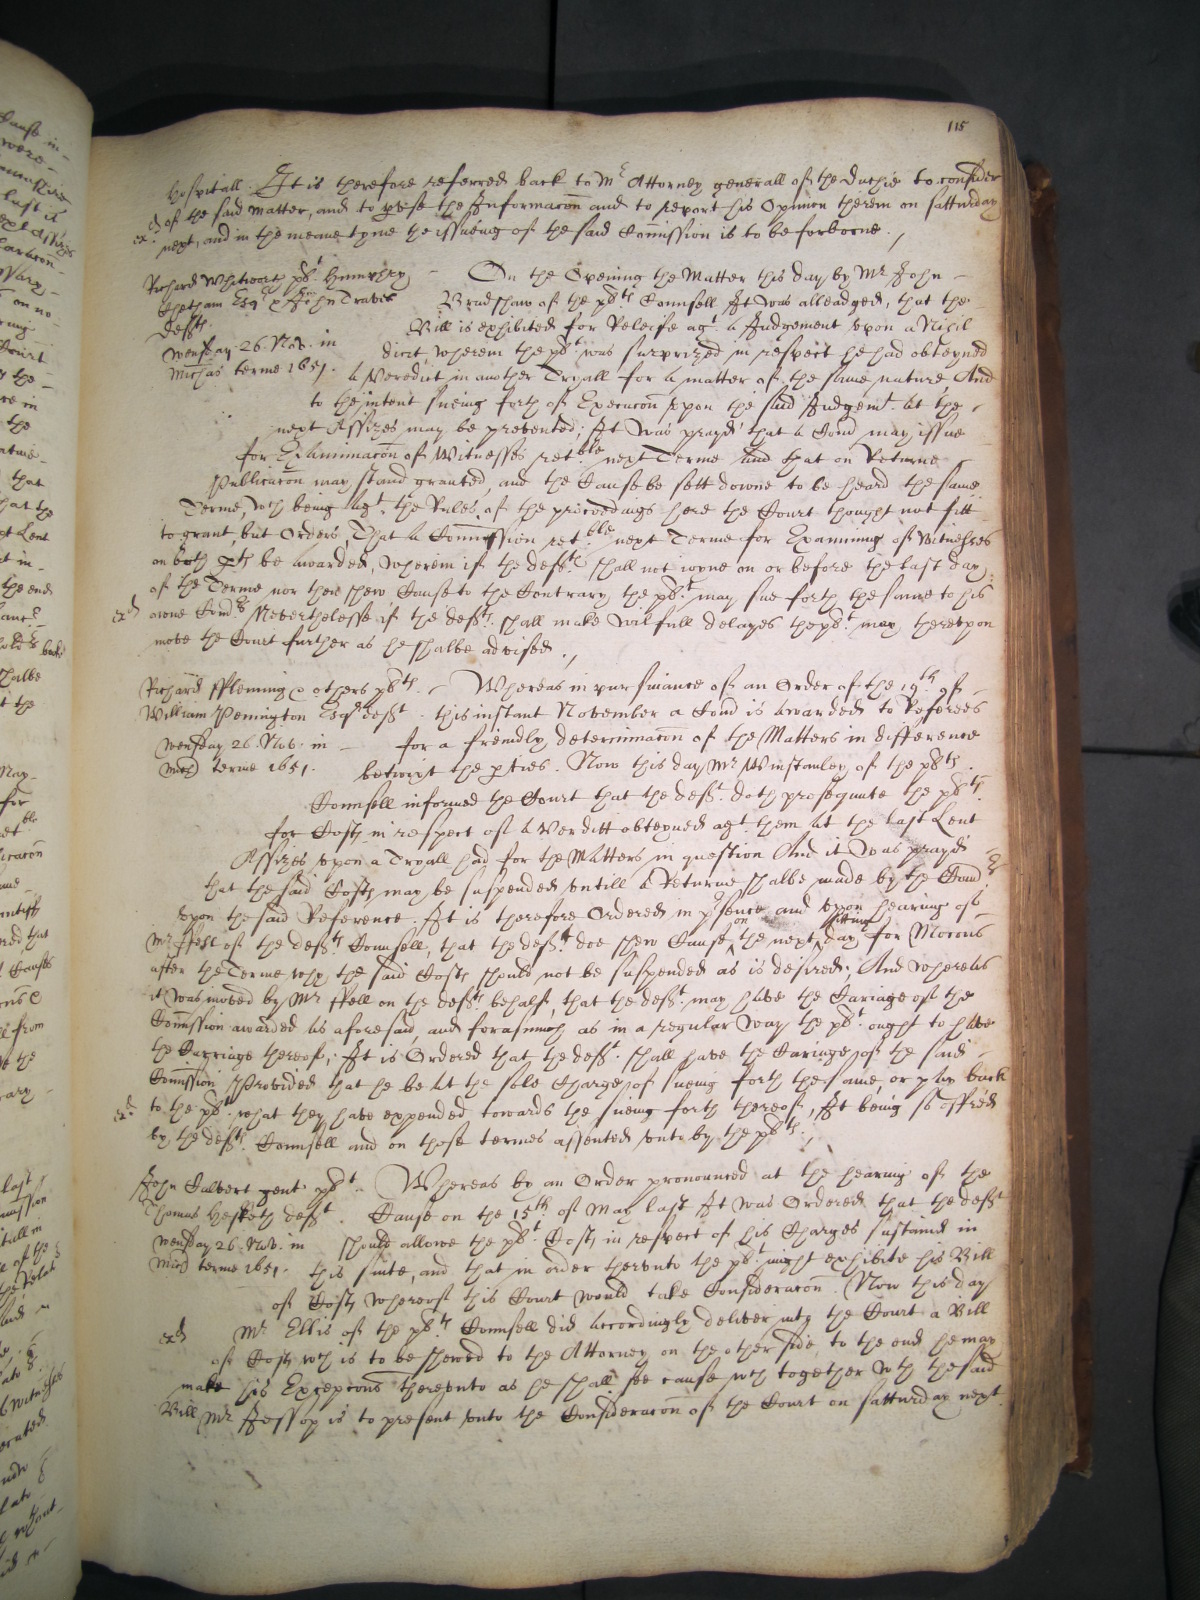 115
Hospitall. It is therefore referred back to Mr Attorney generall of the Duchie to consider
of the said matter, and to pvse the Informacon and to report his Opinion therein on satturday
ex
next, and in the meane tyme the issueing of the said Comission is to be forborne.
Richard Whitworth pbt Humphrey
Chetham Esqr & John Travis
Defts
Wensday 26. Nov. in
Michas terme 1651.
On the Opening the Matter this day by Mr John
Bradshaw of the pbts Counsell It was alleadged, that the
Bill is exhibited for Releife agt a Judgement upon a Nihil
dicit, wherein the pbt was surprized in respect he had obteyned
a Veredict in another Tryall for a matter of the same nature, And
to the intent sueing forth of Execucon upon the said Judgemt at the
next Assizes may be prevented; It was prayd that a Comd may issue
for Examinacon of Witnesses retble next Terme And that on Returne
Publicacon may stand granted, and the Cause be sett downe to be heard the same
Terme, wch being agt the Rules of the proceedings here the Court thought not fitt
to grant, but Orders, That a Comission retble next Terme for Examining of Witnesses
on both pts be awarded, wherein if the deft shall not ioyne on or before the last day
of the Terme nor then shew Cause to the Contrary the pbt may sue forth the same to his
ex
owne Comrs Neverthelesse if the defts shall make wilfull delayes the pbt may thereupon
move the Court further as he shalbe advised.
Richard Ffleming & others pbts
William Penington Esqr deft
Wensday 26. Nov. in
Mich terme 1651.
Whereas in pursuance of an Order of the 19th of
this instant November a Comd is awarded to Referees
for a friendly determinacon of the Matters in difference
betwixt the pties. Now this day Mr Winstanley of the pbts
Counsell informed the Court that the deft doth prosequute the pbts
for Costs in respect of a Verditt obteyned agt them at the last Lent
Assizes upon a Tryall had for the Matters in question And it was prayd
that the said Costs may be suspended untill a Returne shalbe made by the Comrs
upon the said Reference. It is therefore Ordered in psence and upon hearing of
Mr Ffell of the defts Counsell, that the deft doe shew Cause on the next sitting day for Mocons
after the Terme why the said Costs should not be suspended as is desired; And whereas
it was moved by Mr Ffell on the defts behalf, that the deft may have the Cariage of the
Comission awarded as aforesaid, and forasmuch as in a regular way the pbt ought to have
the Carriage thereof; It is Ordered that the deft shall have the Cariage of the said
Comission Provided that he be at the sole Charge of sueing forth the same, or pay back
ex
to the pbts what they have expended towards the sueing forth thereof, It being so offred
by the defts Counsell and on those termes assented unto by the pbts.
John Calvert gent pbt
Thomas Hesketh deft
Wensday 26. Nov. in
Mich terme 1651.
Whereas by an Order pronounced at the hearing of the
Cause on the 15th of May last It was Ordered that the deft
should allowe the pbt Costs in respect of his Charges sustained in
this suite, and that in order therunto the pbt might exhibite his Bill
of Costs whereof this Court would take Consideracon. Now this day
ex
Mr Ellis of the pbts Counsell did accordingly deliver into the Court a Bill
of Costs wch is to be shewed to the Attorney on the other side, to the end he may
make his Excepcons therunto as he shall see cause wch together wth the said
Bill Mr Jessop is to present unto the Consideracon of the Court on satturday next.